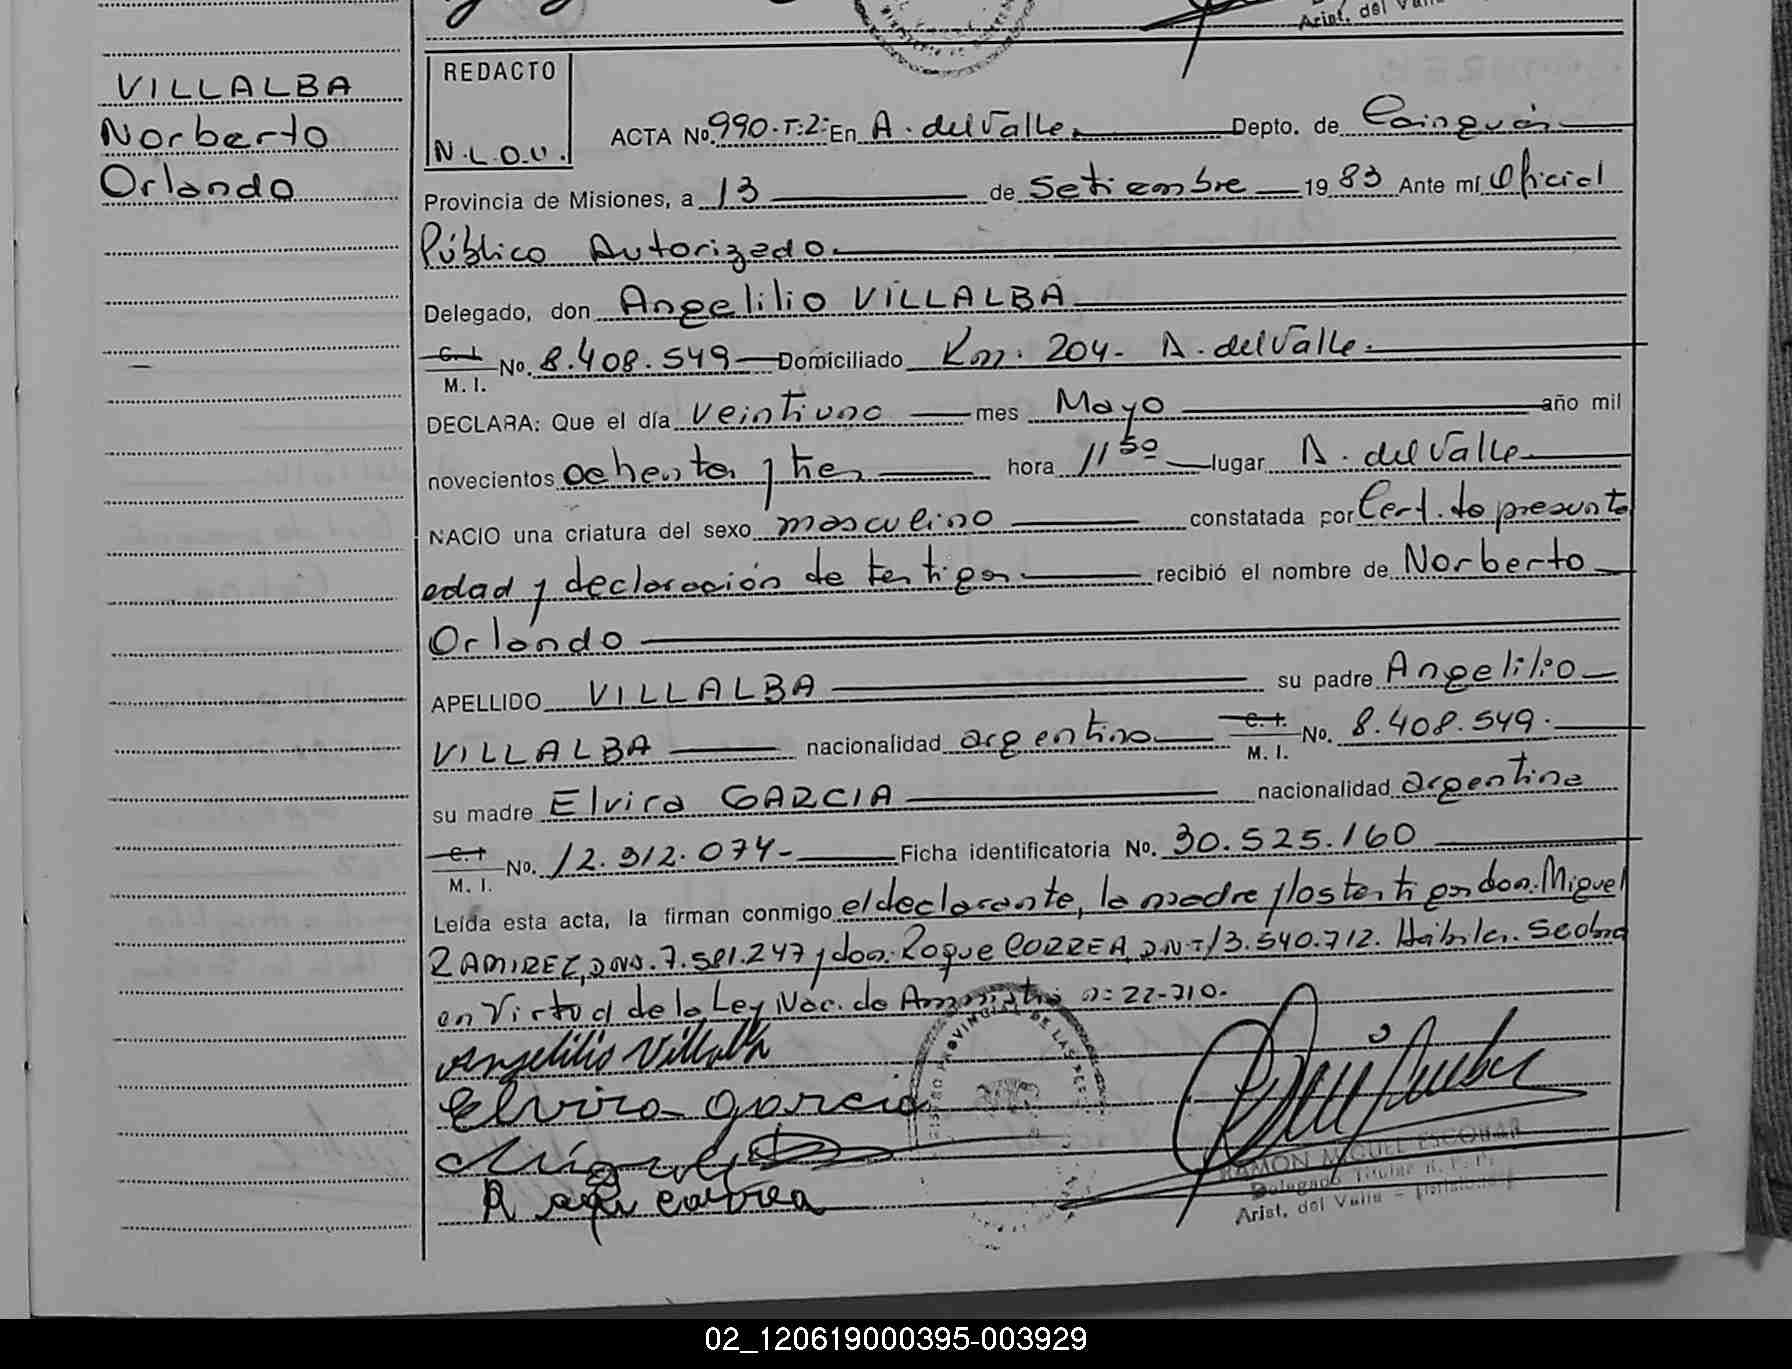 Arist. del Valle
VILLALBA
Norberto
Orlando
REDACTO
N.L.O.V.
ACTA No. 990-T:2: En A. del Valle. Depto. de Cainguás
Provincia de Misiones, a 13 de Setiembre 1983 Ante mí Oficial
Público Autorizado.
Delegado, don Angelilio VILLALBA
C. I. M. I. No. 8.408.549 Domiciliado Km. 204. A. del Valle.
DECLARA: Que el día veintiuno mes Mayo año mil
novecientos ochenta y tres hora 11 50 lugar A. del Valle
NACIO una criatura del sexo masculino constatada por Cert. de presunta
edad y declaración de testigos recibió el nombre de Norberto
Orlando
APELLIDO VILLALBA su padre Angelilio
VILLALBA nacionalidad argentino C. I. M. I. No. 8.408.549.
su madre Elvira GARCIA nacionalidad argentina
C. I. M. I. No. 12.312.074- Ficha identificatoria No. 30.525.160
Leída esta acta, la firman conmigo el declarante, la madre y los testigos don. Miguel
RAMIREZ, DNI. 7.581.247 y don. Roque CORREA, DNI 13.540.712. Se labra
en Virtud de la Ley Nac. de Amnistía n: 22.710.
Angelilio Villalba
Elvira Garcia
Miguel
Correa
PROVINCIAL DE LAS PER
RAMON MIGUEL ESCOBAR
Delegado Titular R. P. P.
Arist. del Valle - (Misiones)
02_120619000395-003929